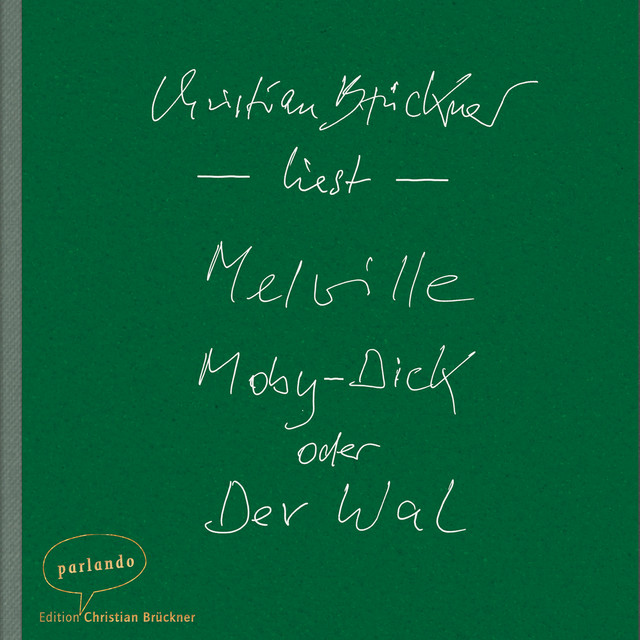 Christian Brückner
— liest —
Melville
Moby-Dick
oder
Der Wal
parlando
Edition Christian Brückner